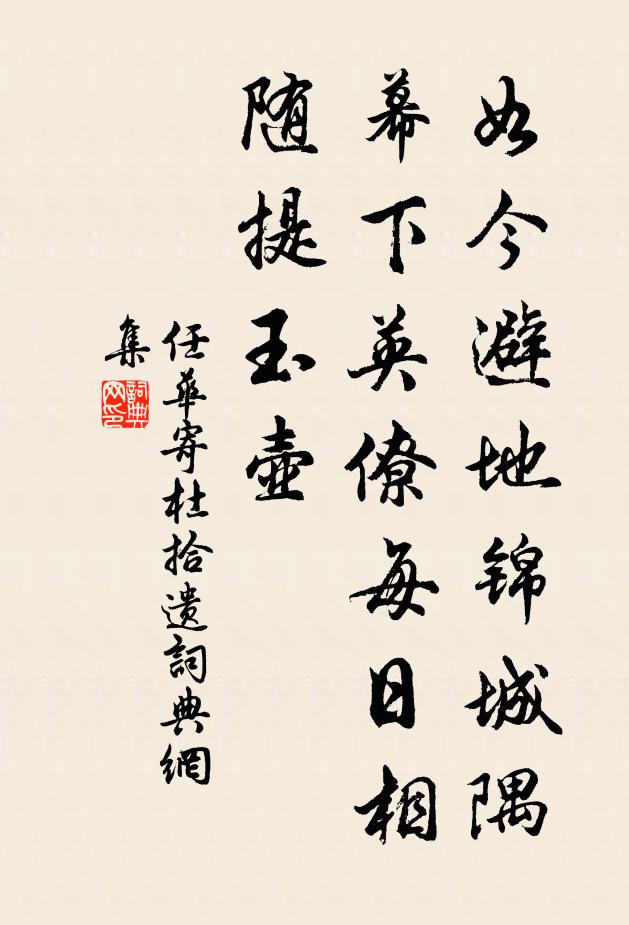 如今避地锦城隅
幕下英僚每日相
随提玉壶
任华寄杜拾遗詞典網
集
詞典
网印